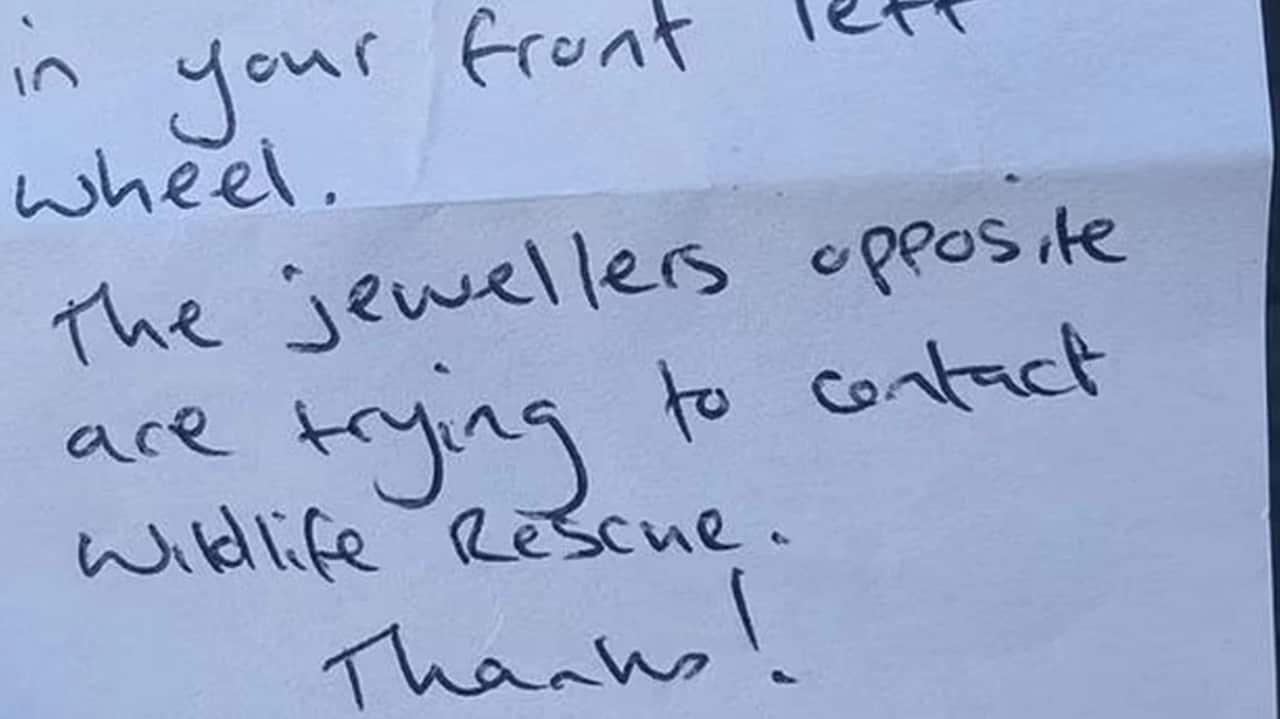 in your front left
wheel.
The jewellers opposite
are trying to contact
Wildlife Rescue.
Thanks!